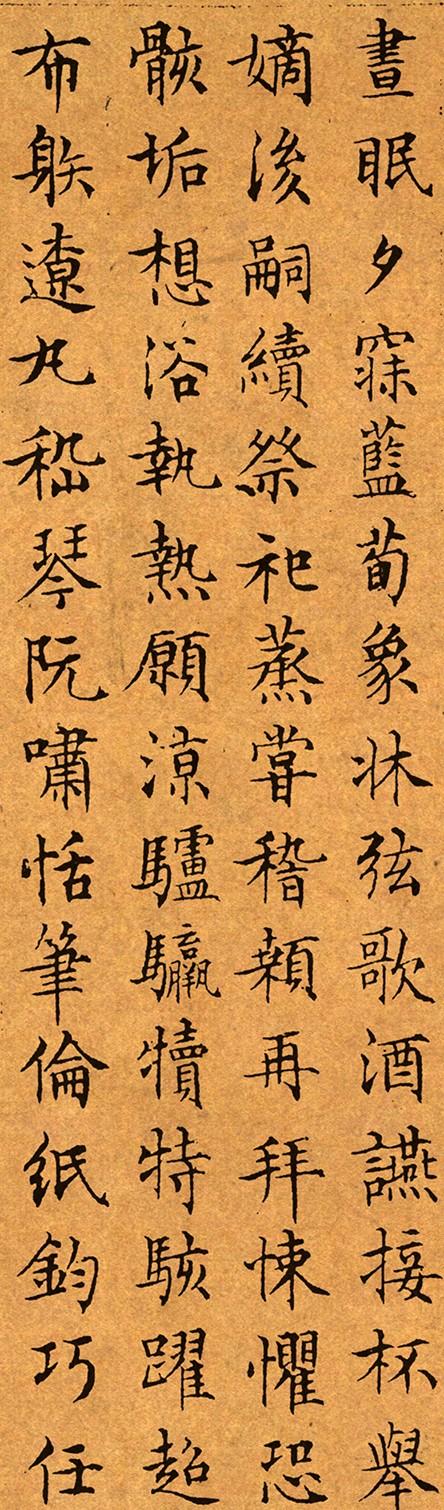 晝眠夕寐藍荀象牀弦歌酒讌接杯舉
嫡後嗣續祭祀蒸嘗稽顙再拜悚懼恐
骸垢想浴執熱願涼驢驘犢特駭躍超
布射遼丸嵇琴阮嘯恬筆倫紙鈞巧任